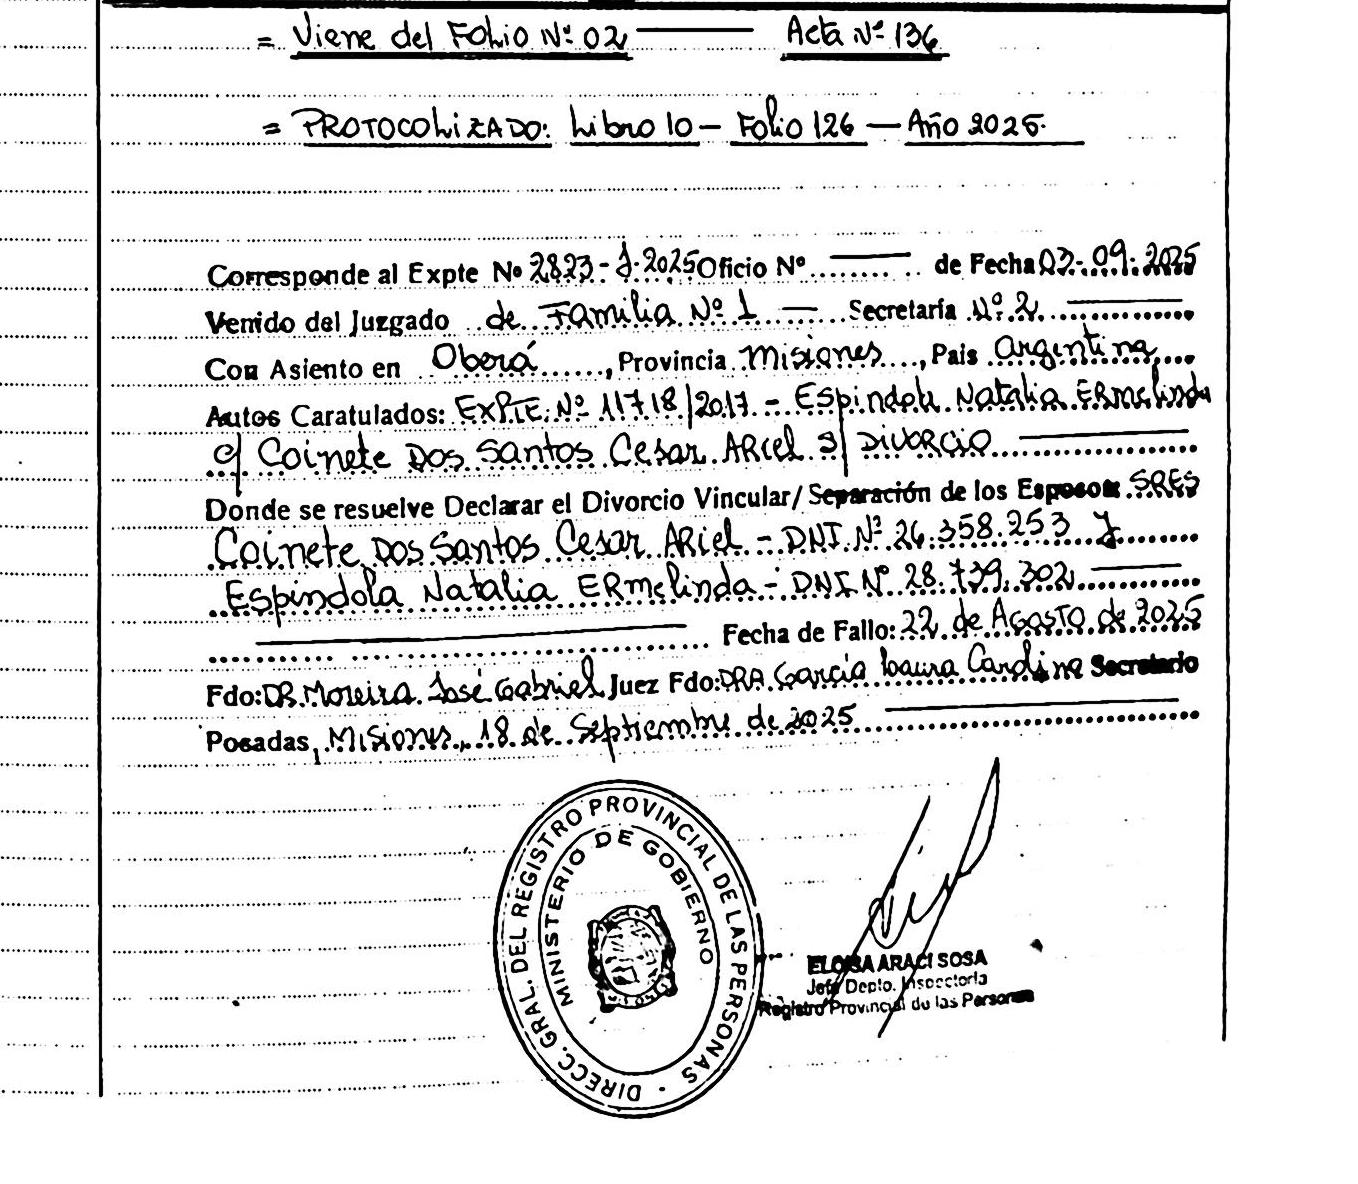 = Viene del Folio Nº 02 ——— Acta Nº 136
= PROTOCOLIZADO: Libro 10 – Folio 126 — Año 2025.
Corresponde al Expte Nº 2823-J-2025 Oficio Nº ——— de Fecha 03-09-2025
Venido del Juzgado de Familia Nº 1 — Secretaría Nº 2 ———
Con Asiento en Oberá, Provincia Misiones, Pais Argentina
Autos Caratulados: EXPTE. Nº 11718/2017 - Espindola Natalia Ermelinda
c/ Coinete Dos Santos Cesar Ariel s/ Divorcio ———
Donde se resuelve Declarar el Divorcio Vincular/ Separación de los Esposos SRES
Coinete Dos Santos Cesar Ariel - DNI Nº 26.358.253 y
Espindola Natalia Ermelinda - DNI Nº 28.739.302 ———
——— Fecha de Fallo: 22 de Agosto de 2025
Fdo: DR. Moreira José Gabriel Juez Fdo: DRA. Garcia Laura Carolina Secretario
Posadas, Misiones, 18 de Septiembre de 2025 ———
DIRECC. GRAL. DEL REGISTRO PROVINCIAL DE LAS PERSONAS
MINISTERIO DE GOBIERNO
ELOISA ARACI SOSA
Jefe Depto. Inspectoria
Registro Provincial de las Personas